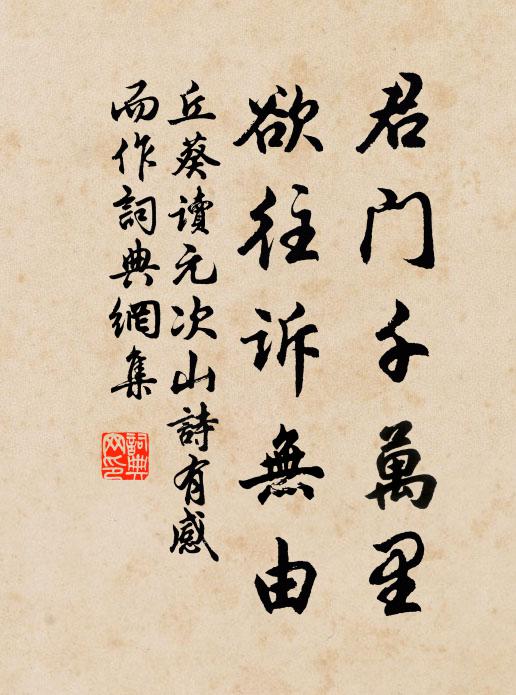 君門千萬里
欲往訴無由
丘葵讀元次山詩有感
而作詞典網集
詞典
网印